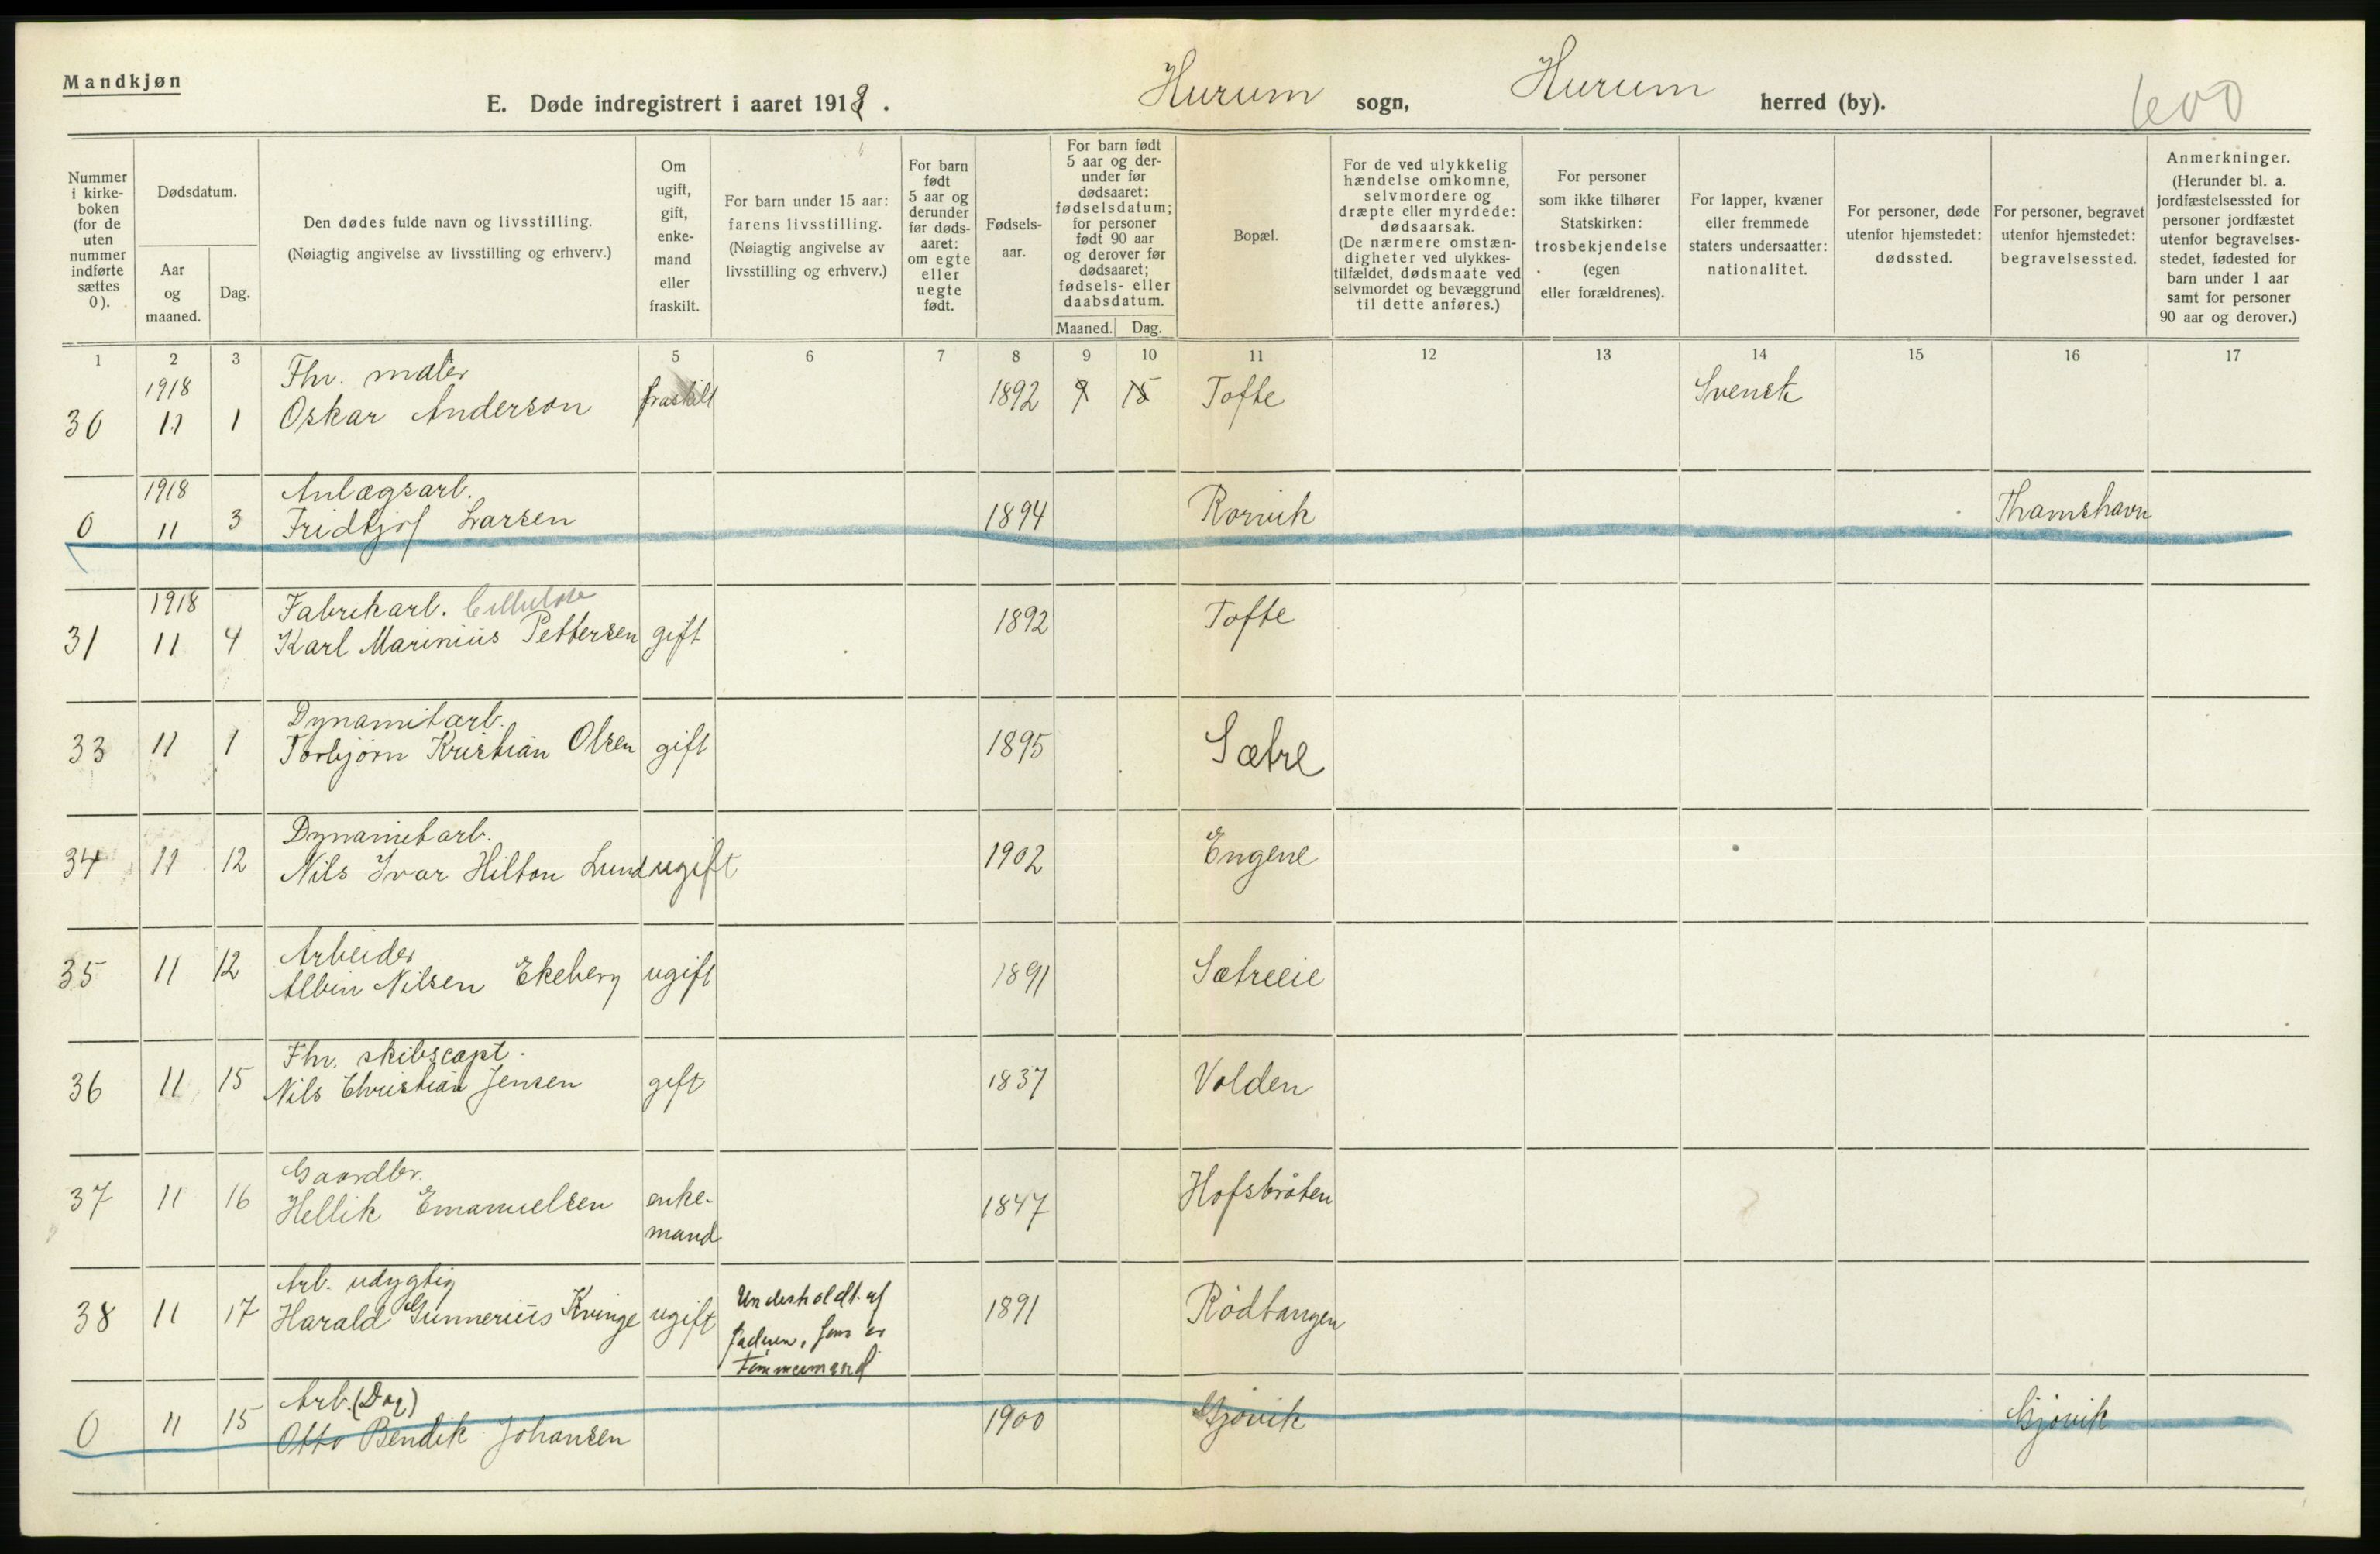 Mandkjøn
E. Døde indregistrert i aaret 1918.
Hurum sogn, Hurum herred (by).
600
Nummer i kirkeboken (for de uten nummer indførte sættes 0).
Dødsdatum.
Aar og maaned.
Dag.
Den dødes fulde navn og livsstilling.
(Nøiagtig angivelse av livsstilling og erhverv.)
Om ugift, gift, enkemand eller fraskilt.
For barn under 15 aar: farens livsstilling.
(Nøiagtig angivelse av livsstilling og erhverv.)
For barn født 5 aar og derunder før dødsaaret: om egte eller uegte født.
Fødselsaar.
For barn født 5 aar og derunder før dødsaaret: fødselsdatum; for personer født 90 aar og derover før dødsaaret; fødsels- eller daabsdatum.
Maaned. Dag.
Bopæl.
For de ved ulykkelig hændelse omkomne, selvmordere og dræpte eller myrdede: dødsaarsak.
(De nærmere omstændigheter ved ulykkestilfældet, dødsmaate ved selvmordet og bevæggrund til dette anføres.)
For personer som ikke tilhører Statskirken: trosbekjendelse (egen eller forældrenes).
For lapper, kvæner eller fremmede staters undersaatter: nationalitet.
For personer, døde utenfor hjemstedet: dødssted.
For personer, begravet utenfor hjemstedet: begravelsessted.
Anmerkninger.
(Herunder bl. a. jordfæstelsessted for personer jordfæstet utenfor begravelsesstedet, fødested for barn under 1 aar samt for personer 90 aar og derover.)
1 2 3 5 6 7 8 9 10 11 12 13 14 15 16 17
1918 Fhv. maler
30 11 1 Oskar Anderson fraskilt 1892 9 15 Tofte Svensk
1918 Anlægsarb.
0 11 3 Fridtjof Larsen 1894 Rorvik Thamshavn
1918 Fabrikarb. Cellulose
31 11 4 Karl Marinius Pettersen gift 1892 Tofte
Dynamitarb.
33 11 1 Torbjørn Kristian Olsen gift 1895 Sætre
Dynamitarb.
34 11 12 Nils Ivar Hilton Lund ugift 1902 Engene
Arbeider
35 11 12 Albin Nilsen Ekeberg ugift 1891 Sætreeie
Fhv. skibscapt.
36 11 15 Nils Christian Jensen gift 1837 Volden
Gaardbr.
37 11 16 Hellik Emanuelsen enke-mand 1847 Hofsbråten
Arb. udygtig
38 11 17 Harald Gunnerius Kvinge ugift Underholdt af faderen, som er tømmermand 1891 Rødtangen
Arb. (Dag)
0 11 15 Otto Bendik Johansen 1900 Gjøvik Gjøvik